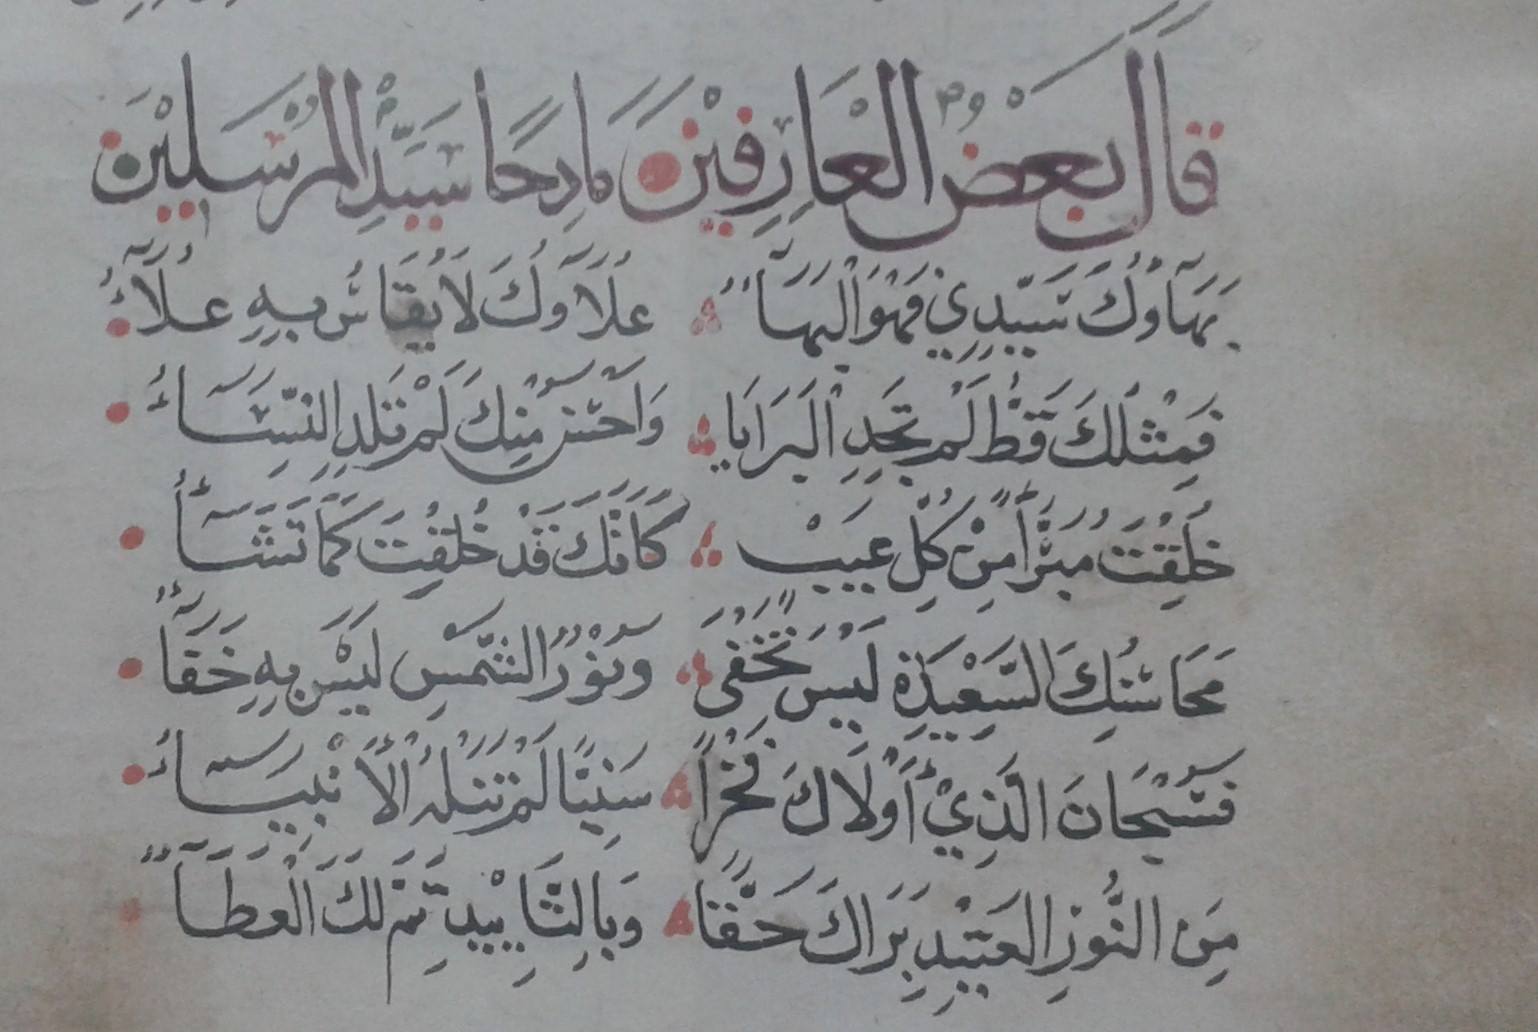 قَالَ بَعْضُ الْعَارِفِيْنَ مَادِحًا سَيِّدِ الْمُرْسَلِيْنَ
بَهَاؤُكَ سَيِّدِيْ فَهُوَ الْبَهَاءُ عُلَاؤُكَ لَا يُقَاسُ بِهِ عُلَاءُ
فَمِثْلُكَ قَطُّ لَمْ تَجِدِ الْبَرَايَا وَاَحْسَنُ مِنْكَ لَمْ تَلِدِ النِّسَاءُ
خُلِقْتَ مُبَرَّأً مِنْ كُلِّ عَيْبٍ كَاَنَّكَ قَدْ خُلِقْتَ كَمَا تَشَأُ
مَحَاسُنِكَ السَّعِيْدَةِ لَيْسَ تَخْفَى وَنُوْرُ الشَّمْسِ لَيْسَ بِهِ خَفَاءُ
فَسُبْحَانَ الَّذِيْ أَوْلَاكَ فَخْرًا سَنِيًّا لَمْ تَنَلْهُ الْأَنْبِيَاءُ
مِنَ النُّوْرِ الْعَتِيْدِ بَرَاكَ حَقًّا وَبِالتَّايِيْدِ تَمَّ لَكَ الْعَطَاءُ